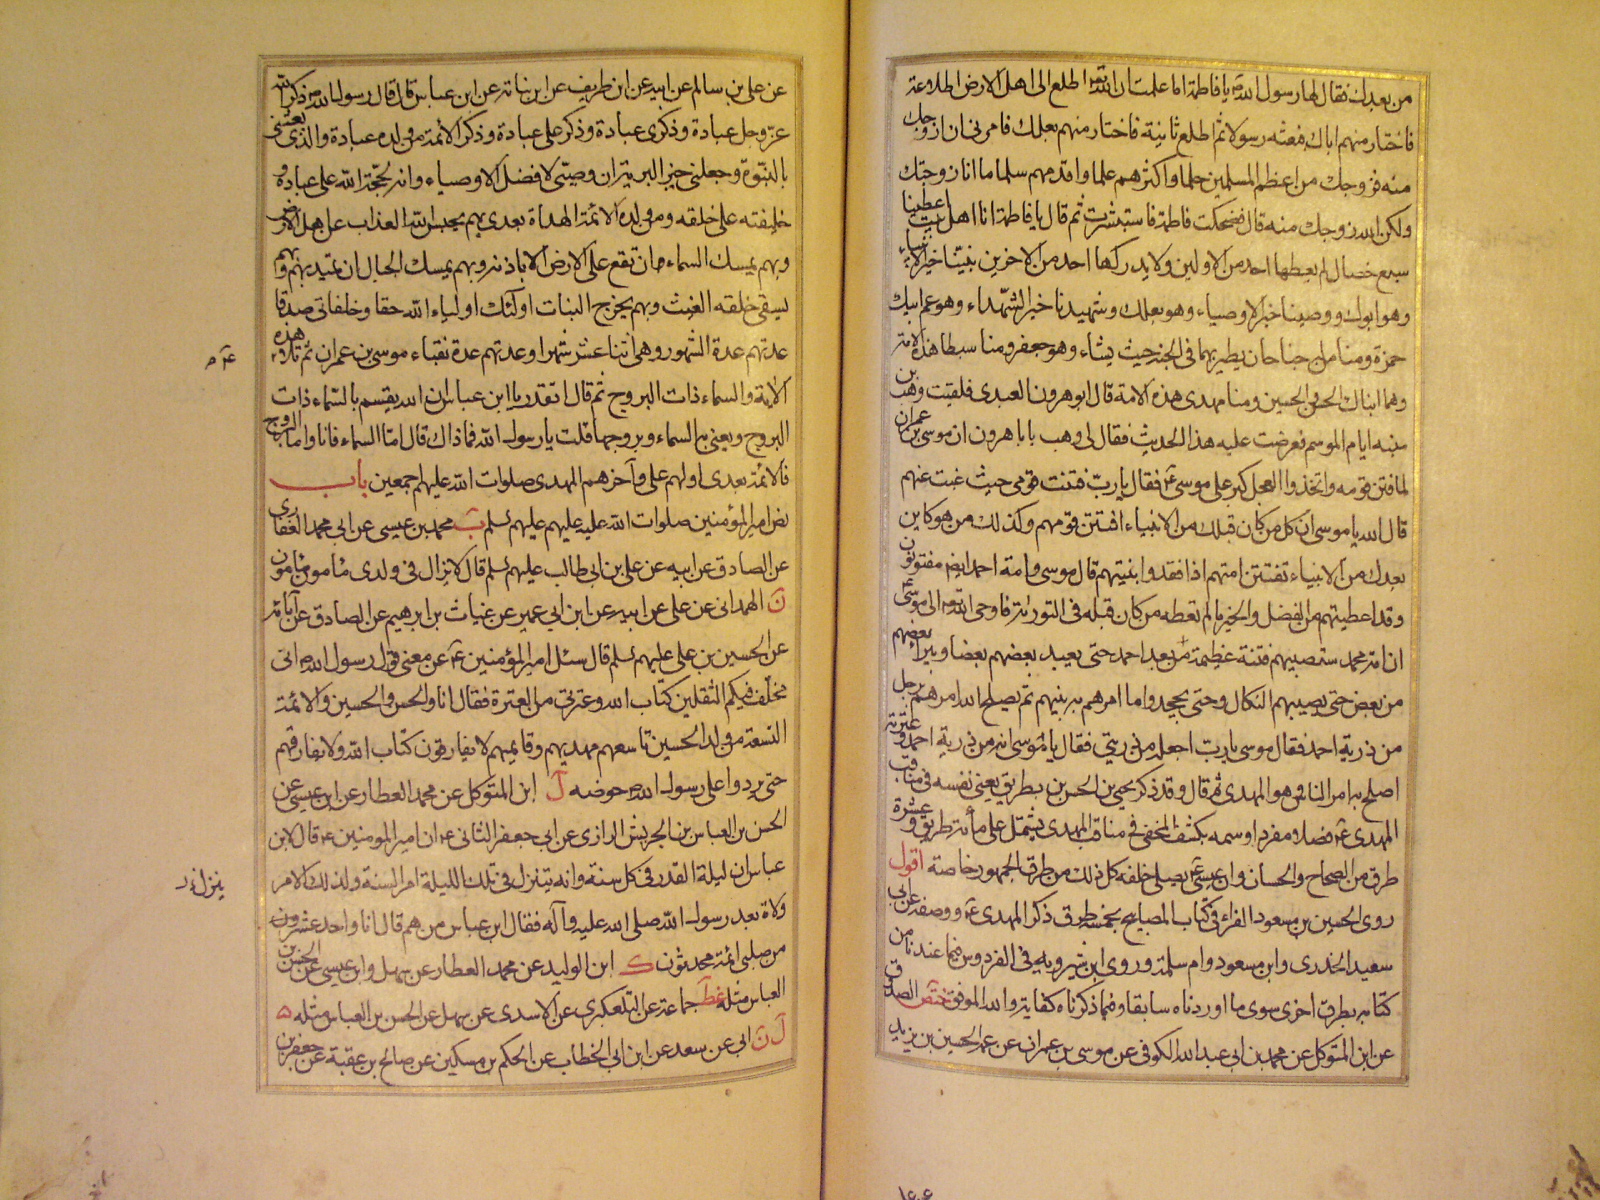 من بعدك فقال لها رسول الله ص يا فاطمة اما علمت ان الله تع اطلع الى اهل الارض اطلاعة
فاختار منهم اباك فبعثه رسولا ثم اطلع ثانية فاختار منهم بعلك فامرني ان ازوجك
منه فزوجك من اعظم المسلمين حلما واكثرهم علما واقدمهم سلما ما انا زوجتك
ولكن الله زوجك منه قال فضحكت فاطمة فاستبشرت ثم قال يا فاطمة انا اهل بيت اعطينا
سبع خصال لم يعطها احد من الاولين ولا يدركها احد من الاخرين نبينا خير الانبياء
وهو ابوك ووصينا خير الاوصياء وهو بعلك وشهيدنا خير الشهداء وهو عم ابيك
حمزة ومنا من له جناحان يطير بهما في الجنة حيث يشاء وهو جعفر ومنا سبطا هذه الامة
وهما ابناك الحسن والحسين ومنا مهدى هذه الامة قال ابو هرون العبدى فلقيت وهب بن
منبه ايام الموسم فعرضت عليه هذا الحديث فقال لى وهب يابا هرون ان موسى بن عمران
لما فتن قومه واتخذوا العجل كبر على موسى ع فقال يا رب فتنت قومي حيث غبت عنهم
قال الله يا موسى ان كل من كان قبلك من الانبياء افتتن قومهم وكذلك من هو كاين
بعدك من الانبياء تفتتن امتهم اذا فقدوا نبيهم قال موسى وامة احمد ايض مفتونون
وقد اعطيتهم من الفضل والخير ما لم تعطه من كان قبله في التورية فاوحى الله تع الى موسى ع
ان امة محمد ستصيبهم فتنة عظيمة من بعد احمد حتى يعبد بعضهم بعضا ويبرأ بعضهم
من بعض حتى يصيبهم النكال وحتى يجحدوا ما امرهم به نبيهم ثم يصلح الله امرهم برجل
من ذرية احمد فقال موسى يا رب اجعله من ذريتي فقال يا موسى انه من ذرية احمد وعترته
اصلح به امر الناس وهو المهدى قال وقد ذكر يحيى بن الحسن بن بطريق يعني نفسه في مناقب
المهدى ع فصلا مفردا وسمه بكشف المخفي في مناقب المهدى يشتمل على مأئة طريق وعشرة
طرق من الصحاح والحسان وان عيسى ع يصلى خلفه كل ذلك من طرق الجمهور خاصة اقول
روى الحسين بن مسعود الفراء في كتاب المصابيح بخمسة طرق ذكر المهدى ع ووصفه عن ابي
سعيد الخدرى وابن مسعود وام سلمة وروى ابن شيرويه في الفردوس فيما عندنا من
كتابه بطرق اخرى سوى ما اوردناه سابقا وفيما ذكرناه كفاية والله الموفق ختص الصدوق
عن ابن المتوكل عن محمد بن ابي عبد الله الكوفي عن موسى بن عمران عن عمه الحسين بن يزيد
عن على بن سالم عن ابيه عن ابن طريف عن ابن نباتة عن ابن عباس قال قال رسول الله ص ذكر الله
عز وجل عبادة وذكرى عبادة وذكر على عبادة وذكر الائمة من ولده عبادة والذى بعثنى
بالنبوة وجعلني خير البرية ان وصيتى لافضل الاوصياء وانه لحجة الله على عباده و
خليفته على خلقه ومن ولده الائمة الهداة بعدى بهم يحبس الله العذاب عن اهل الارض
وبهم يمسك السماء ان تقع على الارض الا باذنه وبهم يمسك الجبال ان تميد بهم وبهم
يسقى خلقه الغيث وبهم يخرج النبات اولئك اولياء الله حقا وخلفائى صدقا
عدتهم عدة الشهور وهي اثنا عشر شهرا وعدتهم عدة نقباء موسى بن عمران ثم تلا هذه
الاية والسماء ذات البروج ثم قال اتقدر يا ابن عباس ان الله يقسم بالسماء ذات
البروج ويعني به السماء وبروجها قلت يا رسول الله فما ذاك قال اما السماء فانا واما البروج
فالائمة بعدى اولهم على وآخرهم المهدى صلوات الله عليهم اجمعين باب
نص امير المؤمنين صلوات الله عليه عليهم عليهم السلم ب محمد بن عيسى عن ابي محمد الغفارى
عن الصادق عن ابيه عن على بن ابي طالب عليهم السلم قال لا يزال في ولدى مأمون مأمون
ن الهمداني عن على عن ابيه عن ابن ابي عمير عن غياث بن ابرهيم عن الصادق عن آبائه
عن الحسين بن على عليهم السلم قال سئل امير المؤمنين ع عن معنى قول رسول الله ص انى
مخلف فيكم الثقلين كتاب الله وعترتي من العترة فقال انا والحسن والحسين والائمة
التسعة من ولد الحسين تاسعهم مهديهم وقائمهم لا يفارقون كتاب الله ولا يفارقهم
حتى يردوا على رسول الله ص حوضه ل ابن المتوكل عن محمد العطار عن ابن عيسى عن
الحسن بن العباس بن الحريش الرازى عن ابي جعفر الثانى ع ان امير المومنين ع قال لابن
عباس ان ليلة القدر في كل سنة وانه تنزل في تلك الليلة امر السنة ولذلك الامر
ولاة بعد رسول الله صلى الله عليه وآله فقال ابن عباس من هم قال انا واحد عشر من
من صلبى ائمة محدثون ك ابن الوليد عن محمد العطار عن سهل وابن عيسى عن الحسن بن
العباس مثله غط جماعة عن التلعكبرى عن الاسدى عن سهل عن الحسن بن العباس مثله
ل ن ابى عن سعد عن ابن ابي الخطاب عن الحكم بن مسكين عن صالح بن عقبة عن جعفر بن